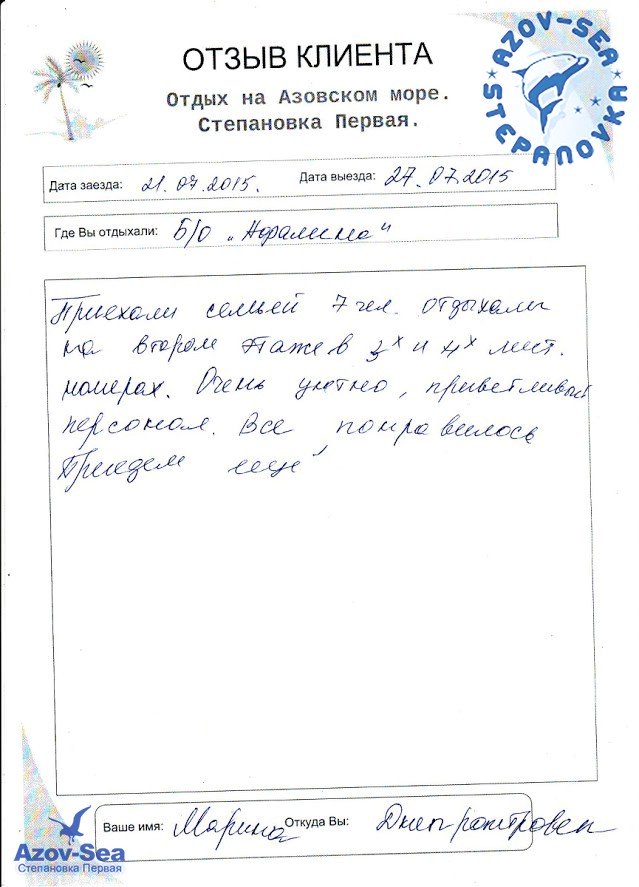 ОТЗЫВ КЛИЕНТА
AZOV-SEA
STEPANOVKA
Отдых на Азовском море.
Степановка Первая.
Дата заезда: 21.07.2015. Дата выезда: 27.07.2015
Где Вы отдыхали: Б/О „Афалина"
Приехали семьей 7 чел. отдыхали
на втором этаже в 3х и 4х мест.
номерах. Очень уютно, приветливый
персонал. Все понравилось
Приедем еще
Ваше имя: Марина Откуда Вы: Днепропетровск
Azov-Sea
Степановка Первая